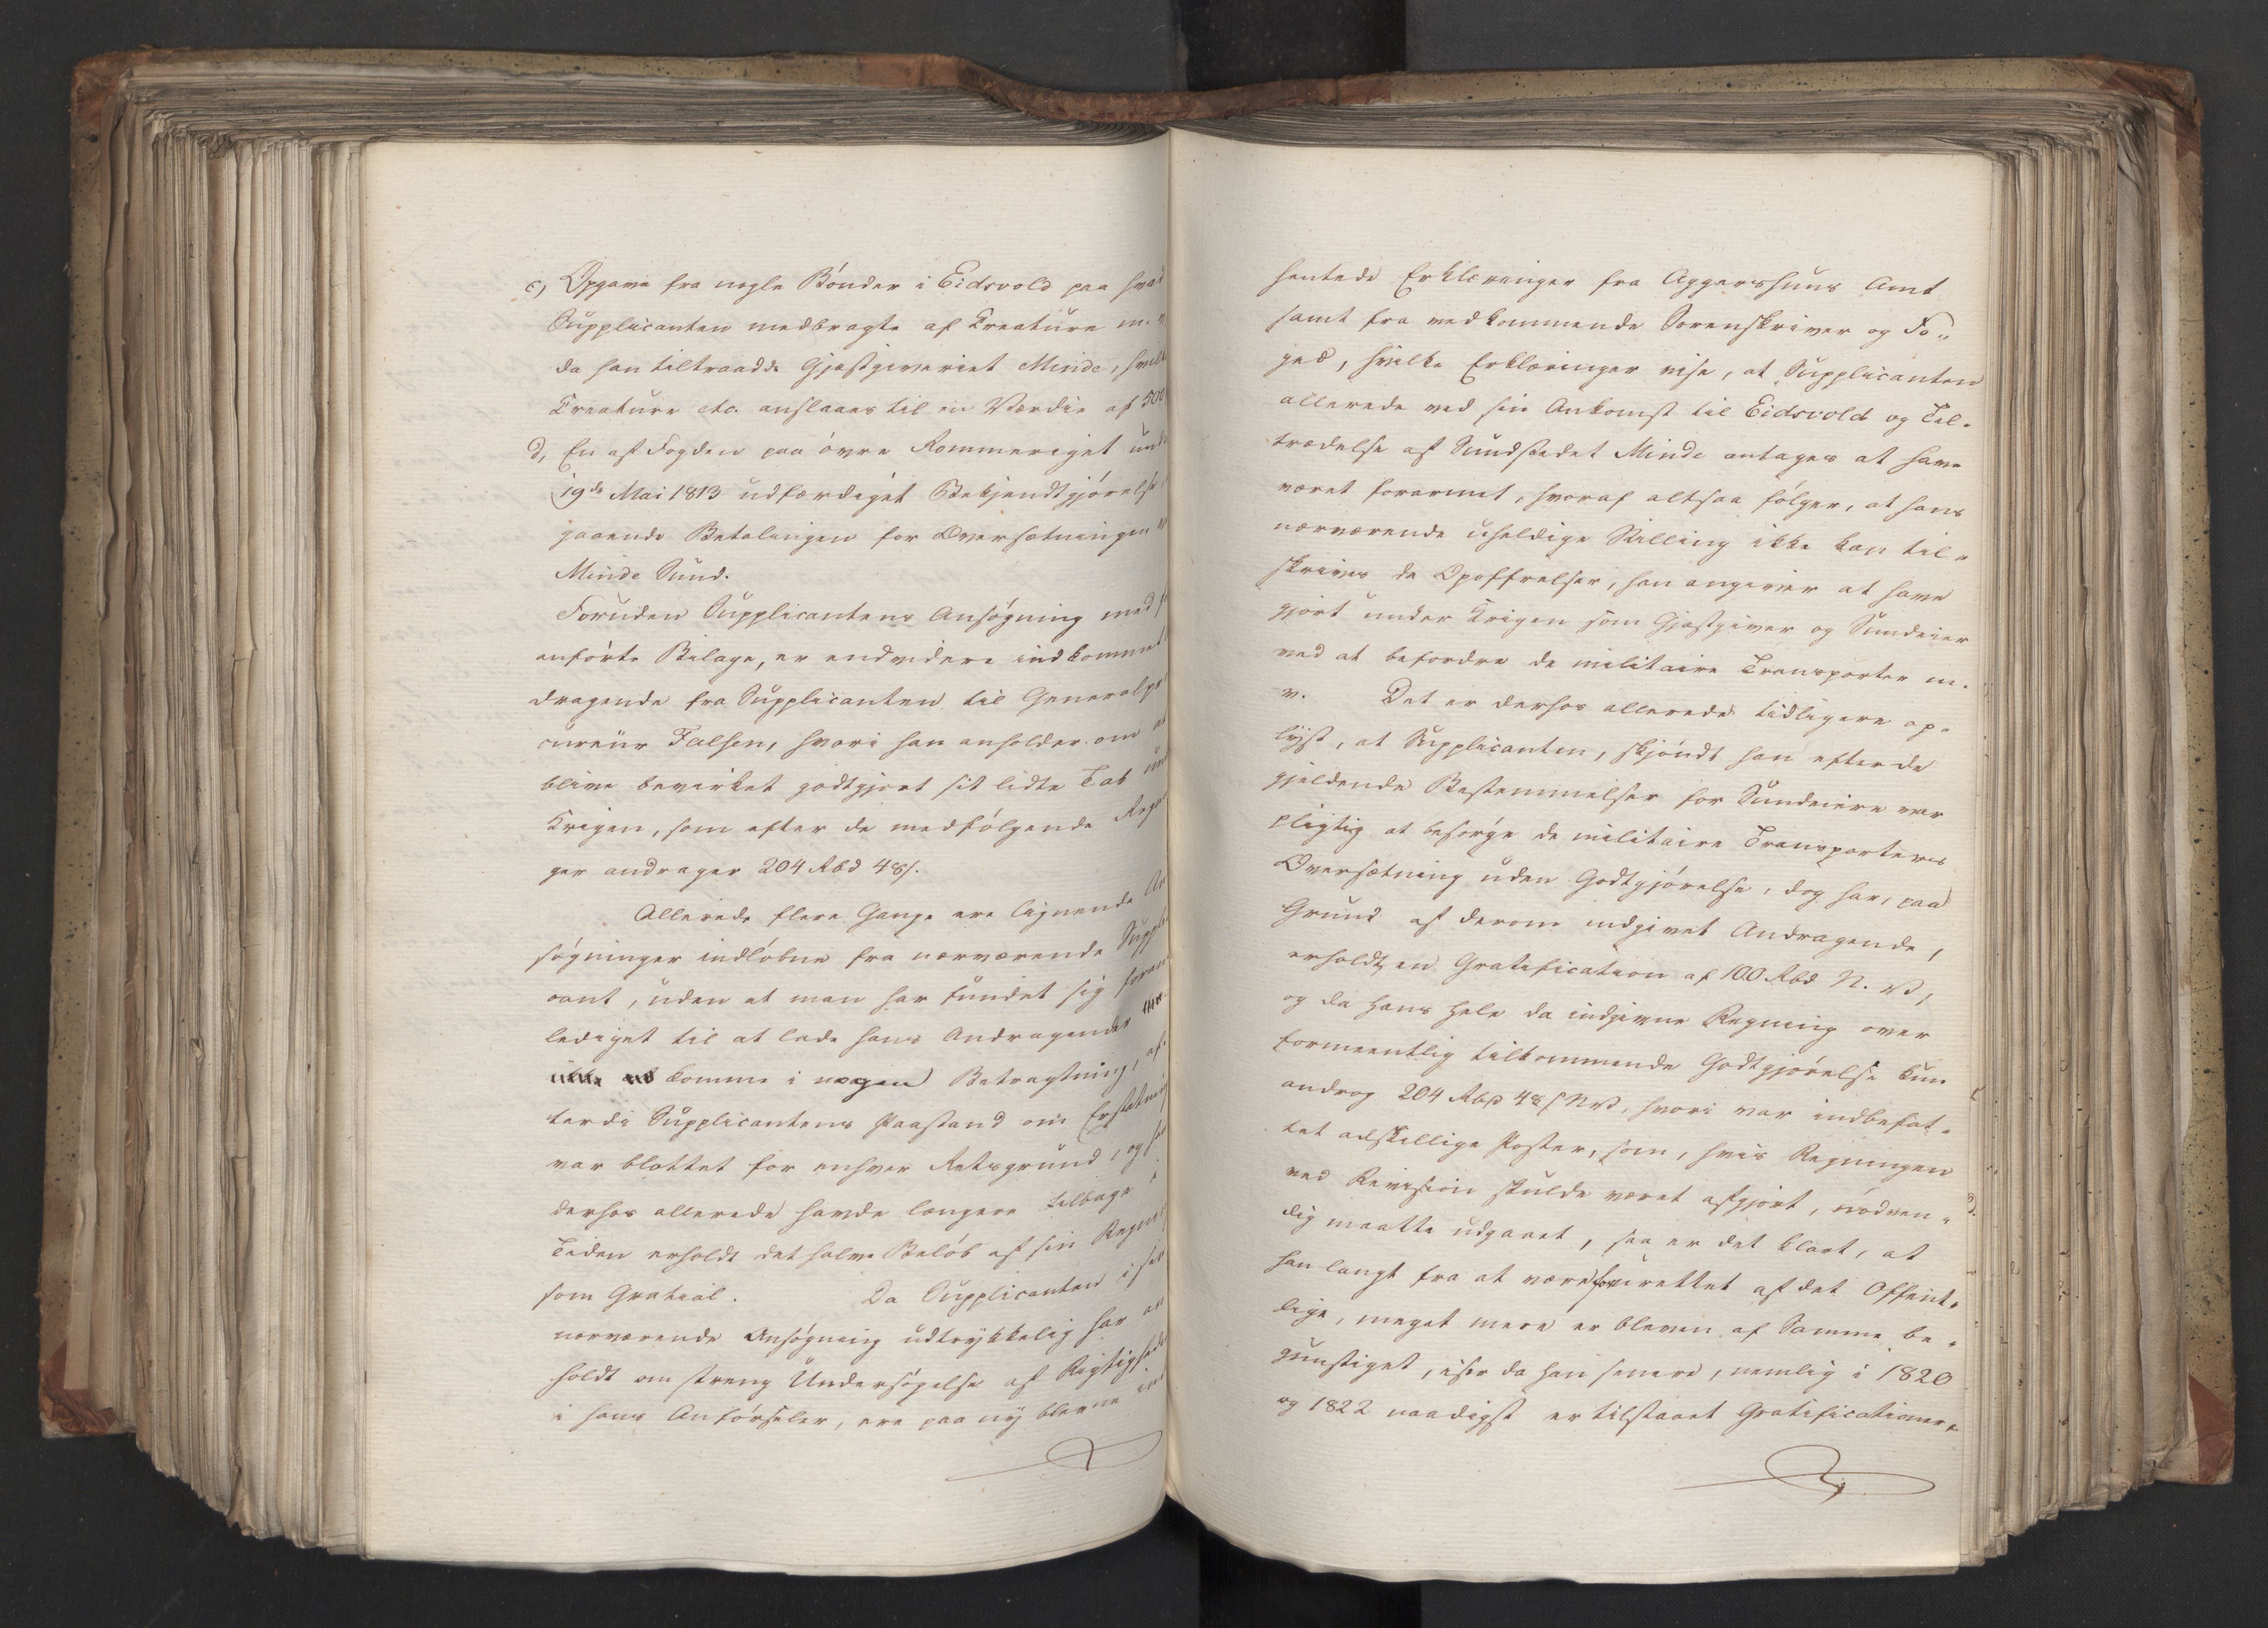 c, Opgave fra nogle Bønder i Eidsvold paa hvad
Supplicanten medbragte af Creature m. m
da han tiltraadde Gjæstgiveriet Minde, hvilk
Creature etc. anslaaes til en Værdie af 500
d, En af Fogden paa øvre Rommeriget und
19de Mai 1813 udfærdiget Bekjendtgjørelse
gaaende Betalingen for Oversætningen
Minde Sund.
Foruden Supplicantens Ansøgning med
anførte Bilage, er endvidere indkommet
dragende fra Supplicanten til Generalpr
cureur Falsen, hvori han anholder om at
blive bevirket godtgjort sit lidte Tab und
Krigen, som efter de medfølgende Regn
ger andrager 204 Rbd 48 s.
Allerede flere Gange ere lignende An
søgninger indløbne fra nærværende Suppli
cant, uden at man har fundet sig foran
lediget til at lade hans Andragender
komme i nogen Betragtning, ef
terdi Supplicantens Paastand om Erstatning
var blottet for enhver Retsgrund, og han
derhos allerede havde længere tilbage i
Tiden erholdt det halve Beløb af sin Regni
som Gratial. Da Supplicanten i sin
nærværende Ansøgning udtrykkelig har an
holdt om streng Undersøgelse af Rigtighede
i hans Anførseler, ere paa ny blevne ind
hentede Erklæringer fra Aggershuus Amt
samt fra vedkommende Sorenskriver og Fo„
ged, hvilke Erklæringer vise, at Supplicanten
allerede ved sin Ankomst til Eidsvold og Til„
trædelse af Sundstedet Minde antages at have
været forarmet, hvoraf altsaa følger, at hans
nærværende uheldige Stilling ikke kan til„
skrives de Opoffrelser, han angiver at have
gjort under Krigen som Gjæstgiver og Sundeier
ved at befordre de militaire Transporter m.
v. Det er derhos allerede tidligere op„
lyst, at Supplicanten, skjøndt han efter de
gjeldende Bestemmelser for Sundeiere var
pligtig at besørge de militaire Transporters
Oversætning uden Godtgjørelse, dog har, paa
Grund af derom indgivet Andragende,
erholdt en Gratification af 100 Rbd N. V,
og da hans hele da indgivne Regning over
formeentlig tilkommende Godtgjørelse kun
androg 204 Rbd 48 s NV, hvori var indbefat„
tet adskillige Poster, som, hvis Regningen
ved Revision skulde været afgjort, nødven„
dig maatte udgaaet, saa er det klart, at
han langt fra at være forurettet af det Offent„
lige, meget mere er bleven af Samme be„
gunstiget, især da han senere, nemlig i 1820
og 1822 naadigst er tilstaaet Gratificationer,